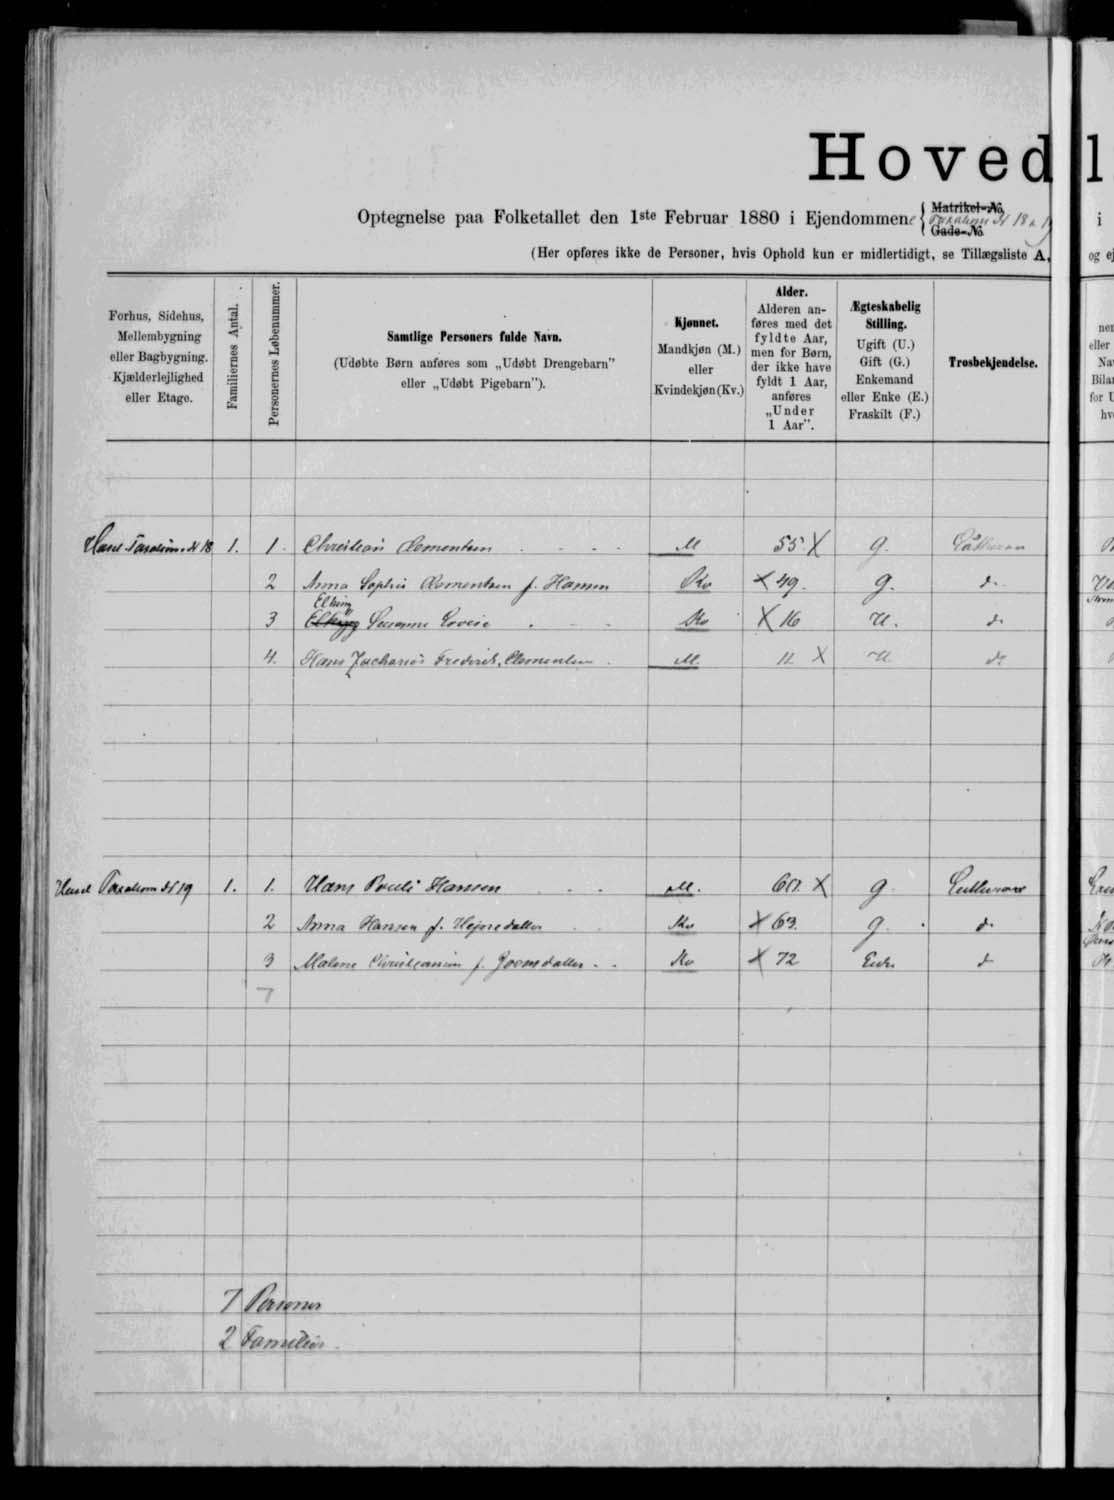 Hoved
Optegnelse paa Folketallet den 1ste Februar 1880 i Ejendommene { Matrikel-No. Taxations № 18 &
Gade-No.
(Her opføres ikke de Personer, hvis Ophold kun er midlertidigt, se Tillægsliste A,
Forhus, Sidehus, Mellembygning eller Bagbygning. Kjælderlejlighed eller Etage.
Familiernes Antal.
Personernes Løbenummer.
Samtlige Personers fulde Navn.
(Udøbte Børn anføres som „Udøbt Drengebarn” eller „Udøbt Pigebarn”).
Kjønnet.
Mandkjøn (M.) eller Kvindekjøn (Kv.)
Alder.
Alderen anføres med det fyldte Aar, men for Børn, der ikke have fyldt 1 Aar, anføres „Under 1 Aar”.
Ægteskabelig Stilling.
Ugift (U.) Gift (G.) Enkemand eller Enke (E.) Fraskilt (F.)
Trosbekjendelse.
Taxations № 18 1. 1. Christian Clementsen M 55 X G.
2 Anna Sophie Clementsen f. Hansen Kv X 49. G. do
Elking
3 Susanne Kv X 16 U. do
4. Hans Zacharias Frederik Clementsen M. 11 X U do
Taxations № 19 1. 1. Hans Pouli Hansen M. X G Lutheran
2 Anna Hansen f. Hejnesdatter Kv X 63. G. do
3 Malene Christiansen f. Joensdatter Kv X 72 Enke do
7
7 Personer
2 Familier.